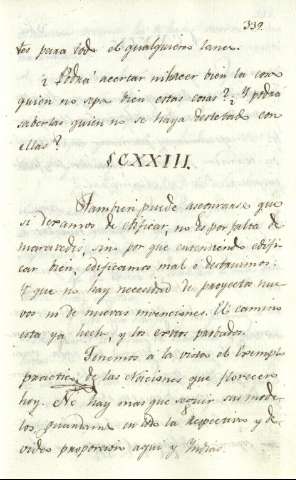 339.
tes para todo el qualquiera lance.
¿Podrá acertar ni hacer bien la cosa
quien no sepa bien estas cosas? ¿Y podrá
saberlas quien no se haya destetado con
ellas?
§CXXIII.
Tampien puede asegurarse que
si dexamos de edificar, no es por falta de
maravedis, sin por que entendiendo edifi-
car bien, edificamos mal ó destruimos:
Y que no hay necesidad de proyectos nue-
vos ni de nuevas invenciones. El camino
esta ya hecho, y los exitos probados.
Tenemos a la vista el Exemplo
practico de las Naciones que florecen
hoy. No hay mas que seguir sus mode-
los, guardando en todo la respectiva y de-
vida proporcion aqui y Indias.